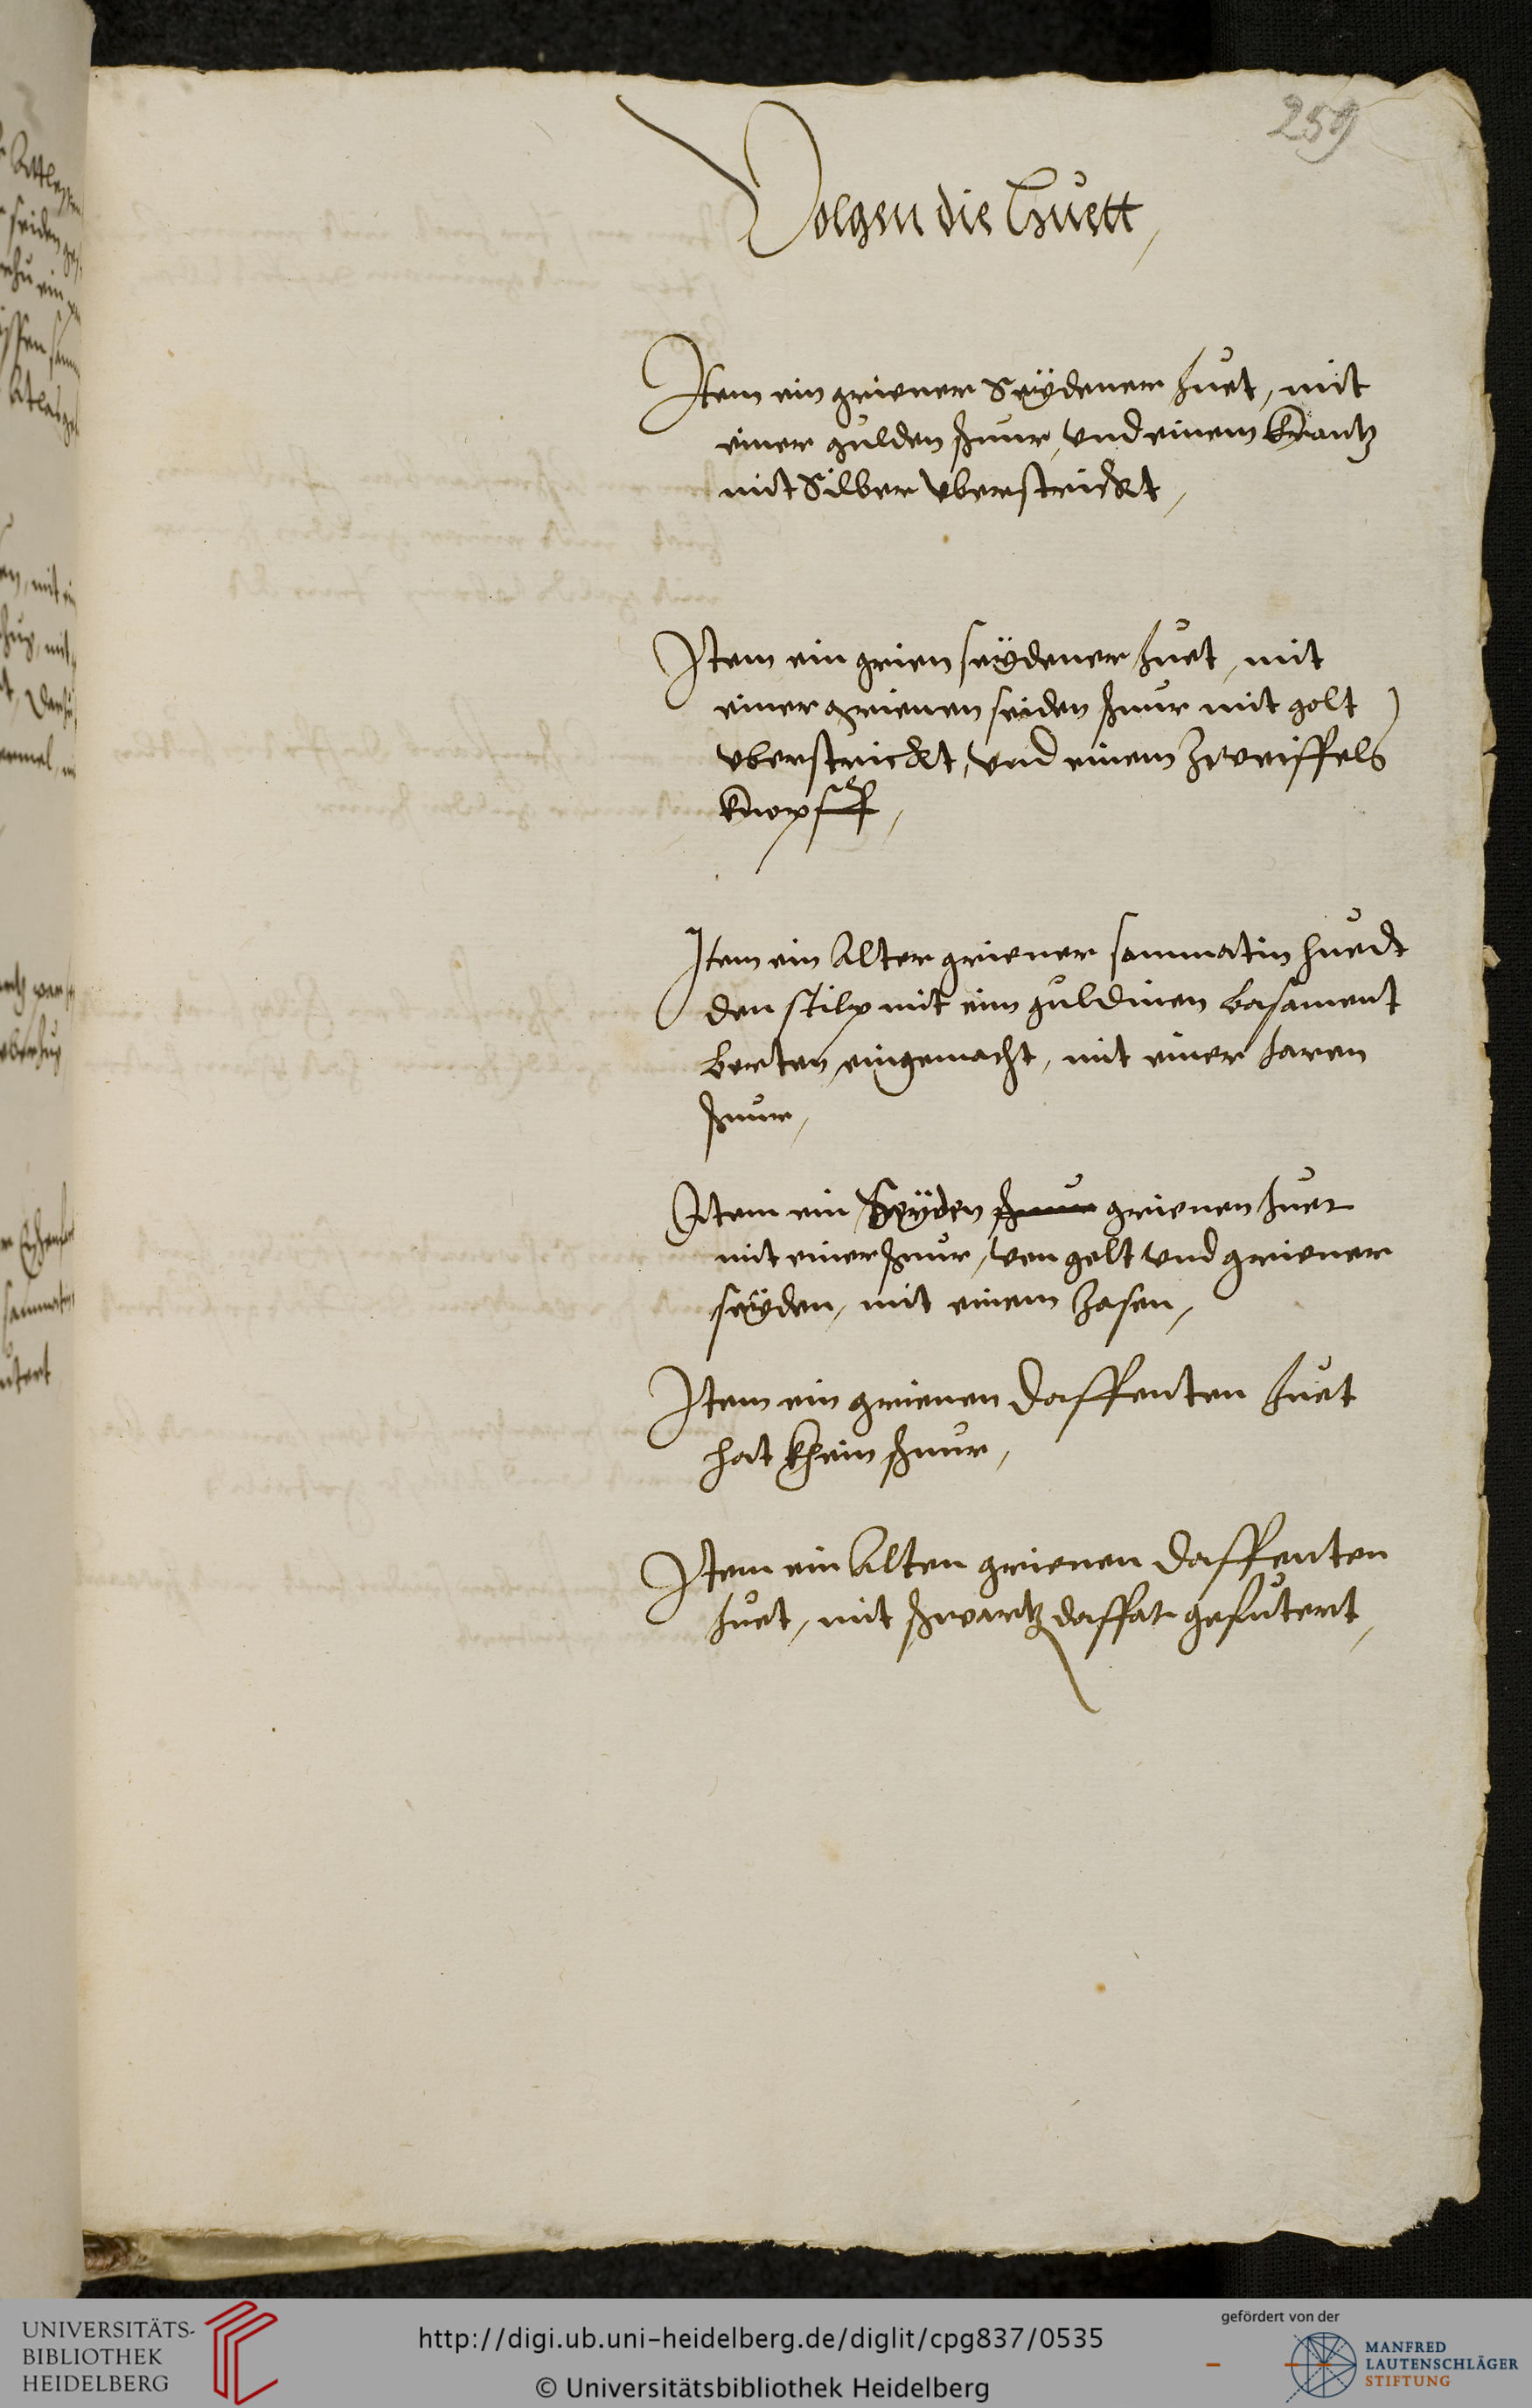 259
Volgen die Huett,
Item ein griener Seÿdener huet, mit
einer gulden shnur, vnd einem Krantz
mit Silber vberstrickt,
Item ein grien seÿdener huet, mit
einer grienen seiden shnur mit golt
vberstrickt, vnd einem Zweiffels
Knopff,
Item ein Alter griener sammatin huedt
den stilp mit eim guldinen basament
borten eingemacht, mit einer haren
shnur,
Item ein Seÿden shnur grienen huet
mit einer shnur, von golt vnd griener
seÿden, mit einem Zasen,
Item ein grienen daffenten huet
hat Khein shnur,
Item ein Alten grienen daffenten
huet, mit shwartz daffat gefutert,
UNIVERSITÄTS-
BIBLIOTHEK
HEIDELBERG
http://digi.ub.uni-heidelberg.de/diglit/cpg837/0535
© Universitätsbibliothek Heidelberg
gefördert von der
MANFRED
LAUTENSCHLÄGER
STIFTUNG